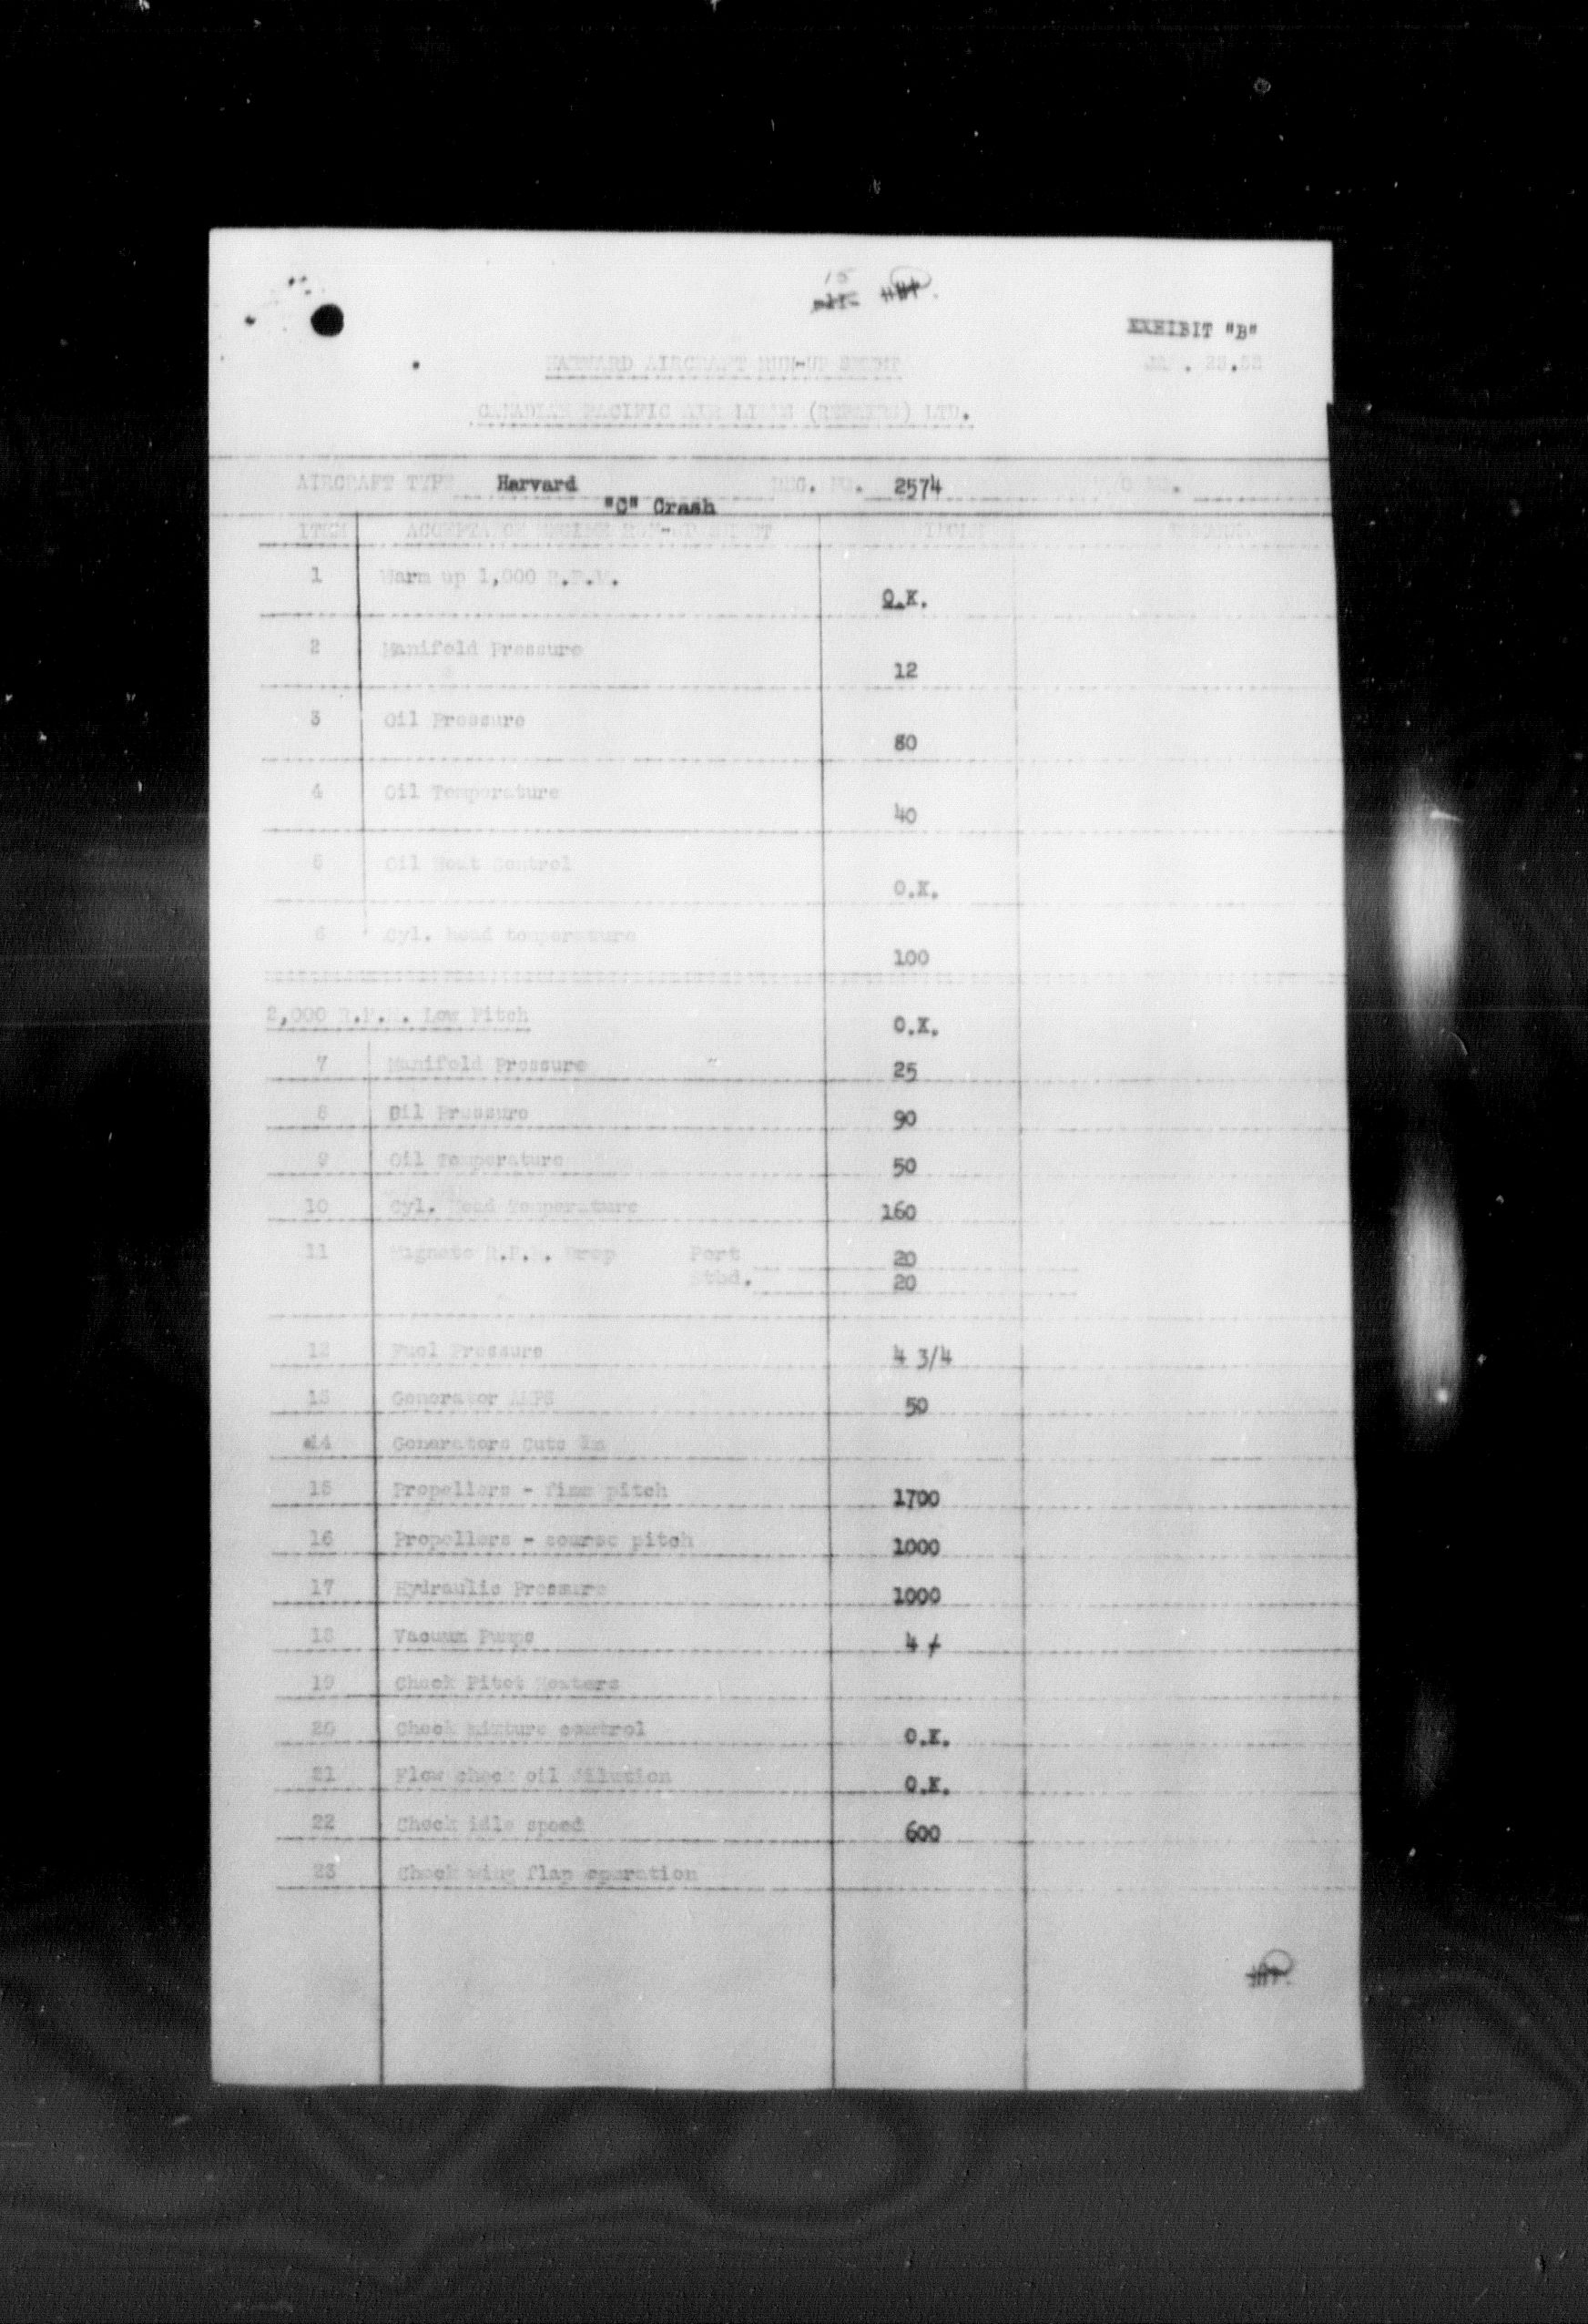 EXHIBIT "B"
HARVARD AIRCRAFT RUN-UP SHEET
CANADIAN PACIFIC AIR LINES (REPAIRS) LTD.
AIRCRAFT TYPE Harvard REG. NO. 2574
"C" Crash
ITEM ACCEPTANCE ENGINE RUN-UP
1 Warm up 1,000 R.P.M. O.K.
2 Manifold Pressure 12
3 Oil Pressure 80
4 Oil Temperature 40
5 Oil Heat Control O.K.
6 Cyl. head temperature 100
2,000 R.P.M. Low Pitch O.K.
7 Manifold Pressure 25
8 Oil Pressure 90
9 Oil Temperature 50
10 Cyl. Head Temperature 160
11 Magneto R.P.M. Drop Port 20
Stbd. 20
12 Fuel Pressure 4 3/4
13 Generator AMPS 50
14 Generators Cuts In
15 Propellers - fine pitch 1700
16 Propellers - course pitch 1000
17 Hydraulic Pressure 1000
18 Vacuum Pumps 4 /
19 Check Pitot Heaters
20 Check mixture control O.K.
21 Flow check oil dilution O.K.
22 Check idle speed 600
23 Check wing flap operation